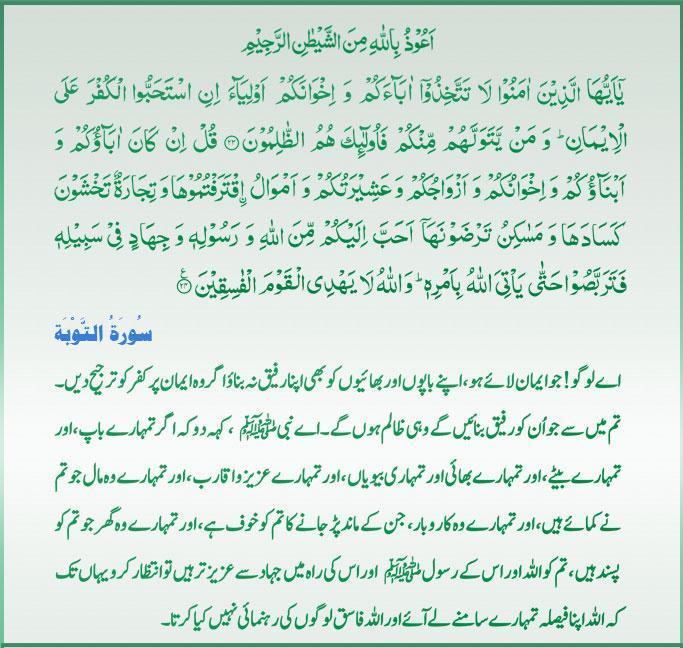 اَعُوْذُ بِاللّٰهِ مِنَ الشَّيْطٰنِ الرَّجِيْمِ
يٰۤاَيُّهَا الَّذِيْنَ اٰمَنُوْا لَا تَتَّخِذُوْۤا اٰبَآءَكُمْ وَ اِخْوَانَكُمْ اَوْلِيَآءَ اِنِ اسْتَحَبُّوا الْكُفْرَ عَلَى
الْاِيْمَانِ ؕ وَ مَنْ يَّتَوَلَّهُمْ مِّنْكُمْ فَاُولٰٓئِكَ هُمُ الظّٰلِمُوْنَ ﴿۲۳﴾ قُلْ اِنْ كَانَ اٰبَآؤُكُمْ وَ
اَبْنَآؤُكُمْ وَ اِخْوَانُكُمْ وَ اَزْوَاجُكُمْ وَ عَشِيْرَتُكُمْ وَ اَمْوَالُ ۨاقْتَرَفْتُمُوْهَا وَ تِجَارَةٌ تَخْشَوْنَ
كَسَادَهَا وَ مَسٰكِنُ تَرْضَوْنَهَاۤ اَحَبَّ اِلَيْكُمْ مِّنَ اللّٰهِ وَ رَسُوْلِهٖ وَ جِهَادٍ فِيْ سَبِيْلِهٖ
فَتَرَبَّصُوْا حَتّٰى يَاْتِيَ اللّٰهُ بِاَمْرِهٖ ؕ وَ اللّٰهُ لَا يَهْدِي الْقَوْمَ الْفٰسِقِيْنَ ﴿۲۴﴾ ع
سُورَةُ التَّوْبَة
اے لوگو! جو ایمان لائے ہو، اپنے باپوں اور بھائیوں کو بھی اپنا رفیق نہ بناؤ اگر وہ ایمان پر کفر کو ترجیح دیں۔
تم میں سے جو اُن کو رفیق بنائیں گے وہی ظالم ہوں گے۔ اے نبی ﷺ ، کہہ دو کہ اگر تمہارے باپ، اور
تمہارے بیٹے، اور تمہارے بھائی اور تمہاری بیویاں، اور تمہارے عزیز و اقارب، اور تمہارے وہ مال جو تم
نے کمائے ہیں، اور تمہارے وہ کاروبار، جن کے ماند پڑ جانے کا تم کو خوف ہے، اور تمہارے وہ گھر جو تم کو
پسند ہیں، تم کو اللہ اور اس کے رسول ﷺ اور اس کی راہ میں جہاد سے عزیز تر ہیں تو انتظار کرو یہاں تک
کہ اللہ اپنا فیصلہ تمہارے سامنے لے آئے اور اللہ فاسق لوگوں کی رہنمائی نہیں کیا کرتا۔